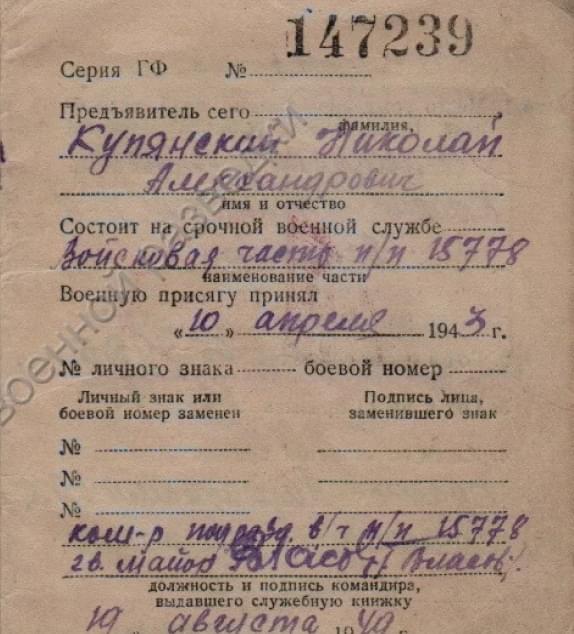 147239
Серия ГФ №
Предъявитель сего
Купянский Николай
фамилия,
Александрович
имя и отчество
Состоит на срочной военной службе
Войсковая часть п/п 15778
наименование части
Военную присягу принял
„ 10 „ апреля 1943 г.
№ личного знака боевой номер
Личный знак или Подпись лица,
боевой номер заменен заменившего знак
№
№
№
ком-р подразд. в/ч п/п 15778
гв. майор Власов /Власов/
должность и подпись командира,
выдавшего служебную книжку
19 августа 1949
военной разведки